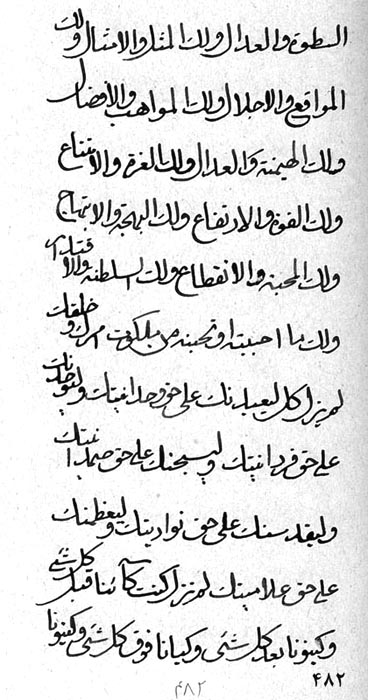 السطوة والعدال ولك المثل والامثال ولك
المواقع والاجلال ولك المواهب والافضال
ولك الهیمنة والعدال ولك العزة والامتناع
ولك القوة والارتفاع ولك البهجة والابتهاج
ولك المحبة والانقطاع ولك السلطنة والاقتدار
ولك ما احببته او تحبنه من ملكوت امرك و خلقك
لم يزل كل ليعبدنك على حق وحدانيتك وليوحدنك
على حق فردانيتك وليسبحنك على حق صمدانيتك
وليقدسنك على حق نوارييتك وليعظمنك
على حق علاميتك لم تزل كنت كائنا قبل كل شئ
وكينونا بعد كل شئ وكيانا فوق كل شئ وكينونا
۴۸۲
۴۸۲